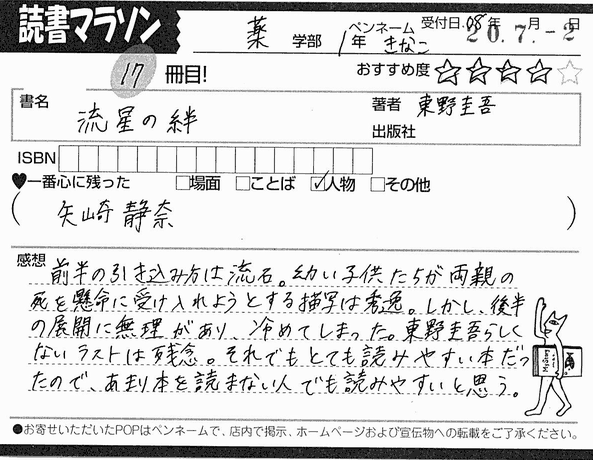 読書マラソン
薬 学部 1年 ペンネーム きなこ 受付日.08年 月 日
20.7.-2
17 冊目! おすすめ度
書名 流星の絆
著者 東野圭吾
出版社
ISBN
♥一番心に残った □場面 □ことば ☑人物 □その他
(矢崎静奈)
感想
前半の引き込み方は流石。幼い子供たちが両親の
死を懸命に受け入れようとする描写は秀逸。しかし、後半
の展開に無理があり、冷めてしまった。東野圭吾らしく
ないラストは残念。それでもとても読みやすい本だっ
たので、あまり本を読まない人でも読みやすいと思う。
●お寄せいただいたPOPはペンネームで、店内で掲示、ホームページおよび宣伝物への転載をご了承ください。